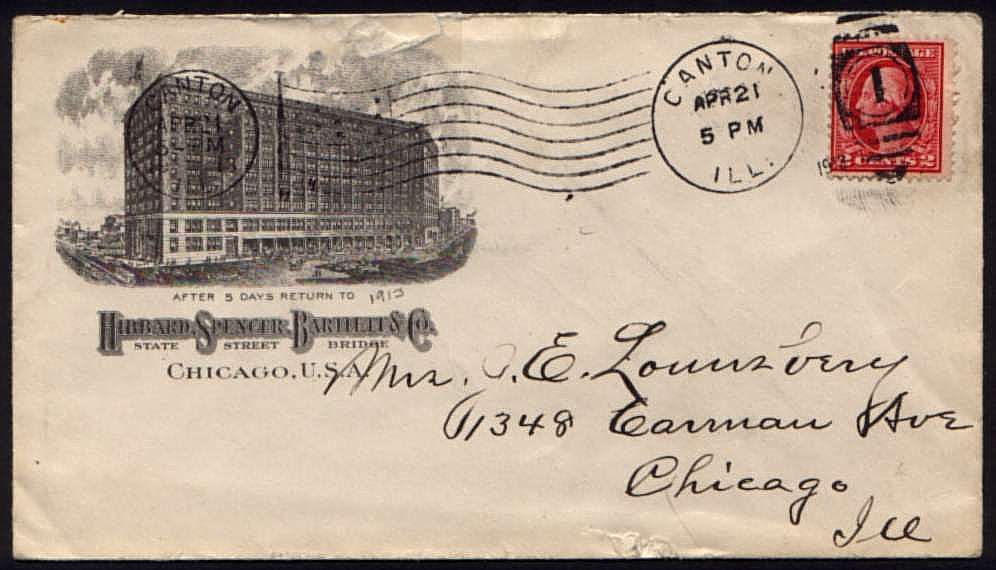 CANTON
APR 21
PM
CANTON
APR 21
5 PM
ILL.
1
CENTS 2
AFTER 5 DAYS RETURN TO 1913
HIBBARD, SPENCER, BARTLETT & CO.
STATE STREET BRIDGE
CHICAGO, U.S.A.
Mrs. J. E. Lounsbery
1348 Carman Ave
Chicago
Ill